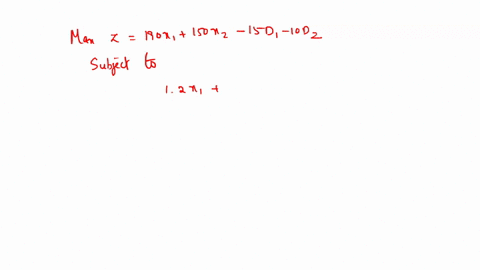 Max Z = 190x₁ + 150x₂ - 15D₁ - 10D₂
Subject to
1.2x₁ +